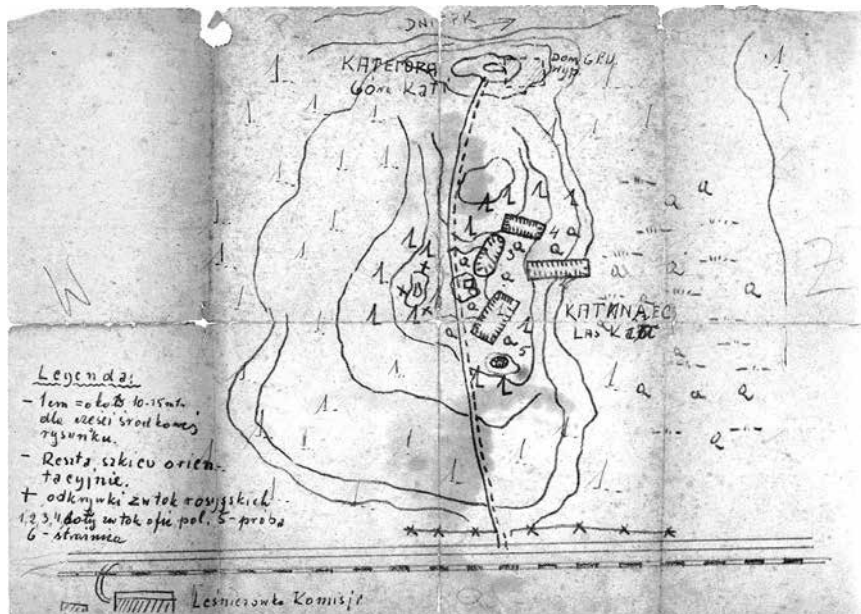 DNIEPR
KATEDRA
Góra KAT
DOM GRU
W
Z
3
4
5
KATYNA
LAS KAT
Legenda:
- 1cm = około 10-15 mtr
dla części środkowej
rysunku.
- Reszta szkicu orien-
tacyjnie.
+ odkrywki zwłok rosyjskich
1,2,3,4, doły zwłok ofic pol. 5 - próba
6 - strażnica
Leśniczówka Komisji